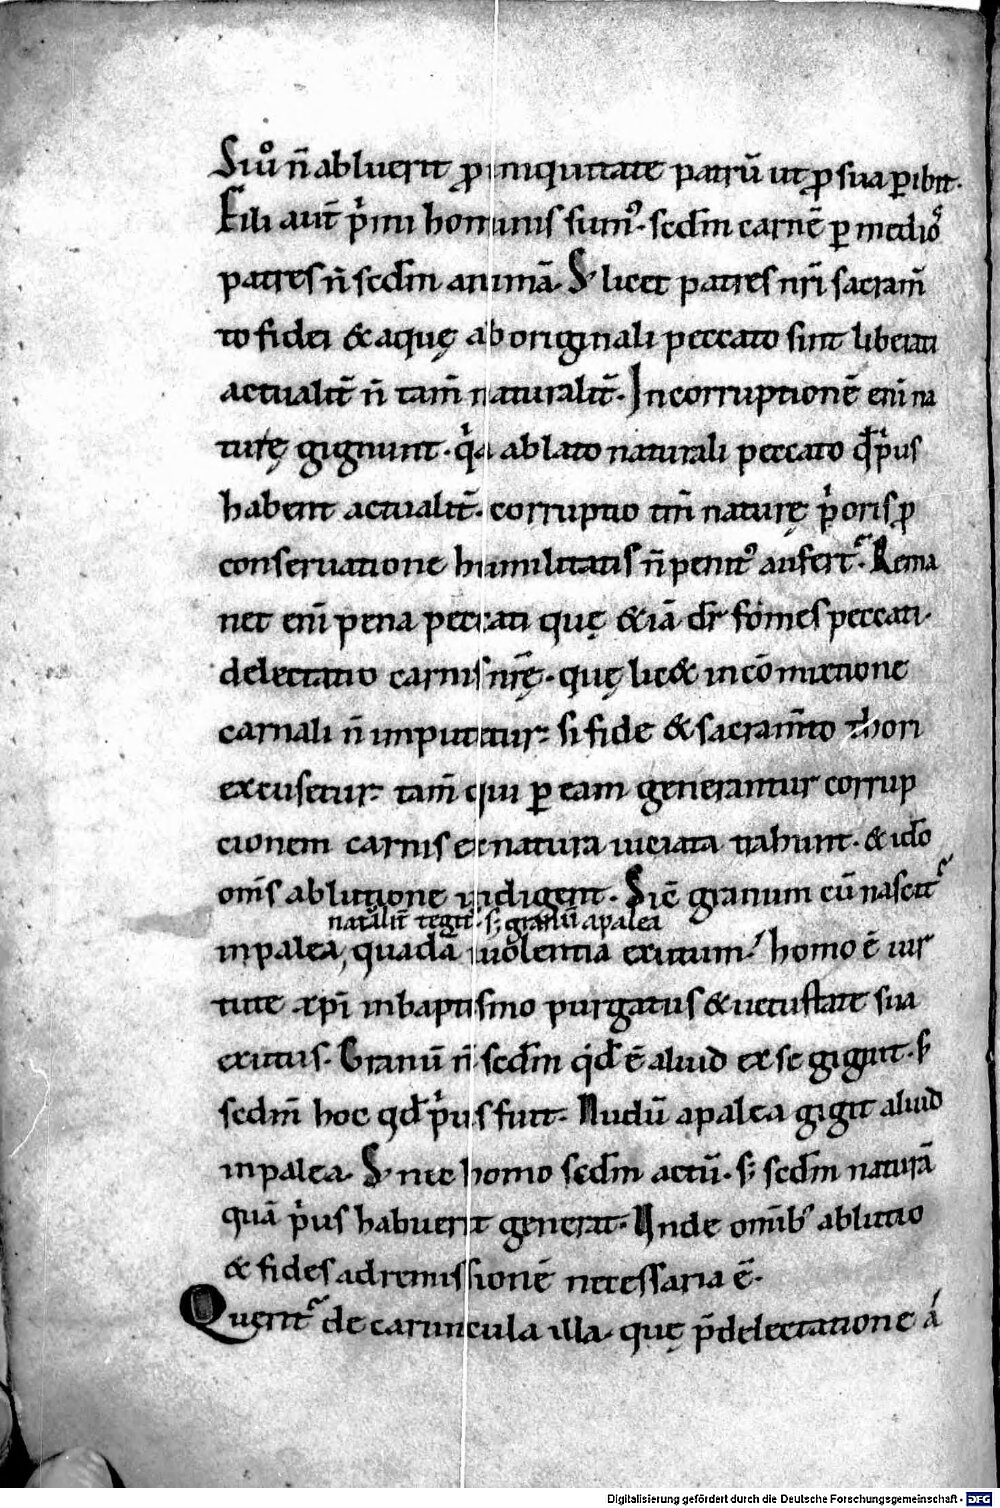 Siuº n̄ abluerit ꝓ iniquitate patrū ut ꝓ sua ꝑibit.
Filii aut̄ p̍mi hominis sumꝰ. scd̄m carnē ꝑ medioꝰ
patres n̄ scd̄m animā. S; licet patres nr̄i sacram̄
to fidei & aquę ab originali peccato sint liberati
actualit̄ n̄ tam̄ naturalit̄. In corruptionē eni̅ na
turę gignunt. q̍a ablato naturali peccato qd̄ p̍us
habent actualit̄. corruptio tm̄ naturę p̍oris ꝓ
conseruatione humilitatis n̄ penitꝰ aufert᷑. Rema
net eni̅ pena peccati quę & iā dr̄ fomes peccati.
delectatio carnis nr̄ę. quę lic& in cōmixtione
carnali n̄ imputetur. si fide & sacram̄to thori
excusetur. tam̄ qui ꝑ eam generantur corrup
cionem carnis ex natura uiciata trahunt. & ido̅
om̄s ablutione indigent. Sic̄ granum cū nascit᷑
naturalit̄ tegit᷑. s; granū a palea
in palea, quadā uiolentia exutum. homo ē uir
tute xp̄i in baptismo purgatus & uetustate sua
exutus. Granū n̄ scd̄m q̍d ē aliud ex se gignit. s;
scdm̄ hoc qd̄ p̍us fuit. Nudū a palea gigit aliud
in palea. S; nec homo scd̄m actū. s; scd̄m naturā
quā p̍us habuerit generat. Unde om̄ib; ablutio
& fides ad remissionē necessaria ē.
Querit᷑ de caruncula illa. quę p̄ delectatione a̍